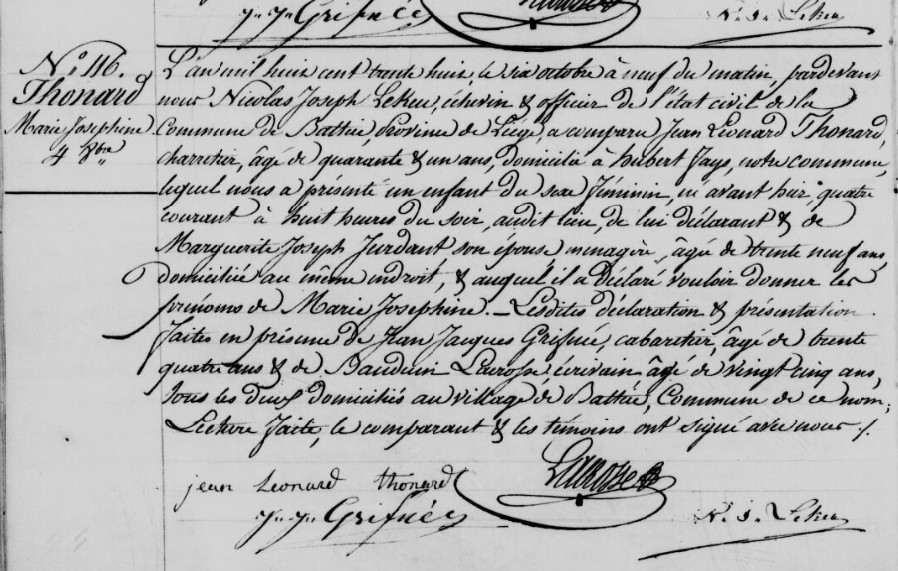 J. Jn. Grisnée
N. J. Lekeu
N.° 116.
Thonard
Marie Josephine
4 8bre
L'an mil huit cent trente huit, le six octobre à neuf du matin, pardevant
nous Nicolas Joseph Lekeu, échevin & officier de l'état civil de la
Commune de Battice, Province de Liége, a comparu Jean Léonard Thonard,
charretier, âgé de quarante & un ans, domicilié à hubert fays, notre commune,
lequel nous a présenté un enfant du sexe féminin, né avant hier, quatre
courant à huit heures du soir, audit lieu, de lui déclarant & de
Marguerite Joseph Jurdant son épouse menagère, âgée de trente neuf ans,
domiciliée au même endroit, & auquel il a déclaré vouloir donner les
prénoms de Marie Josephine. Lesdites déclaration & présentation
faites en présence de Jean Jacques Grisnée, cabaretier, âgé de trente
quatre ans & de Bauduin Larosse, écrivain âgé de vingt cinq ans,
tous les deux domiciliés au village de Battice, Commune de ce nom;
Lecture faite, le comparant & les témoins ont signé avec nous ./.
jean Leonard thonard
Larosse
J. Jn. Grisnée
N. J. Lekeu